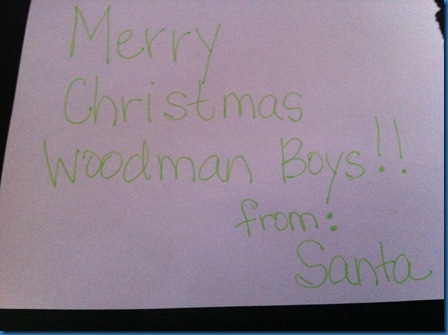 Merry
Christmas
Woodman Boys!!
from:
Santa